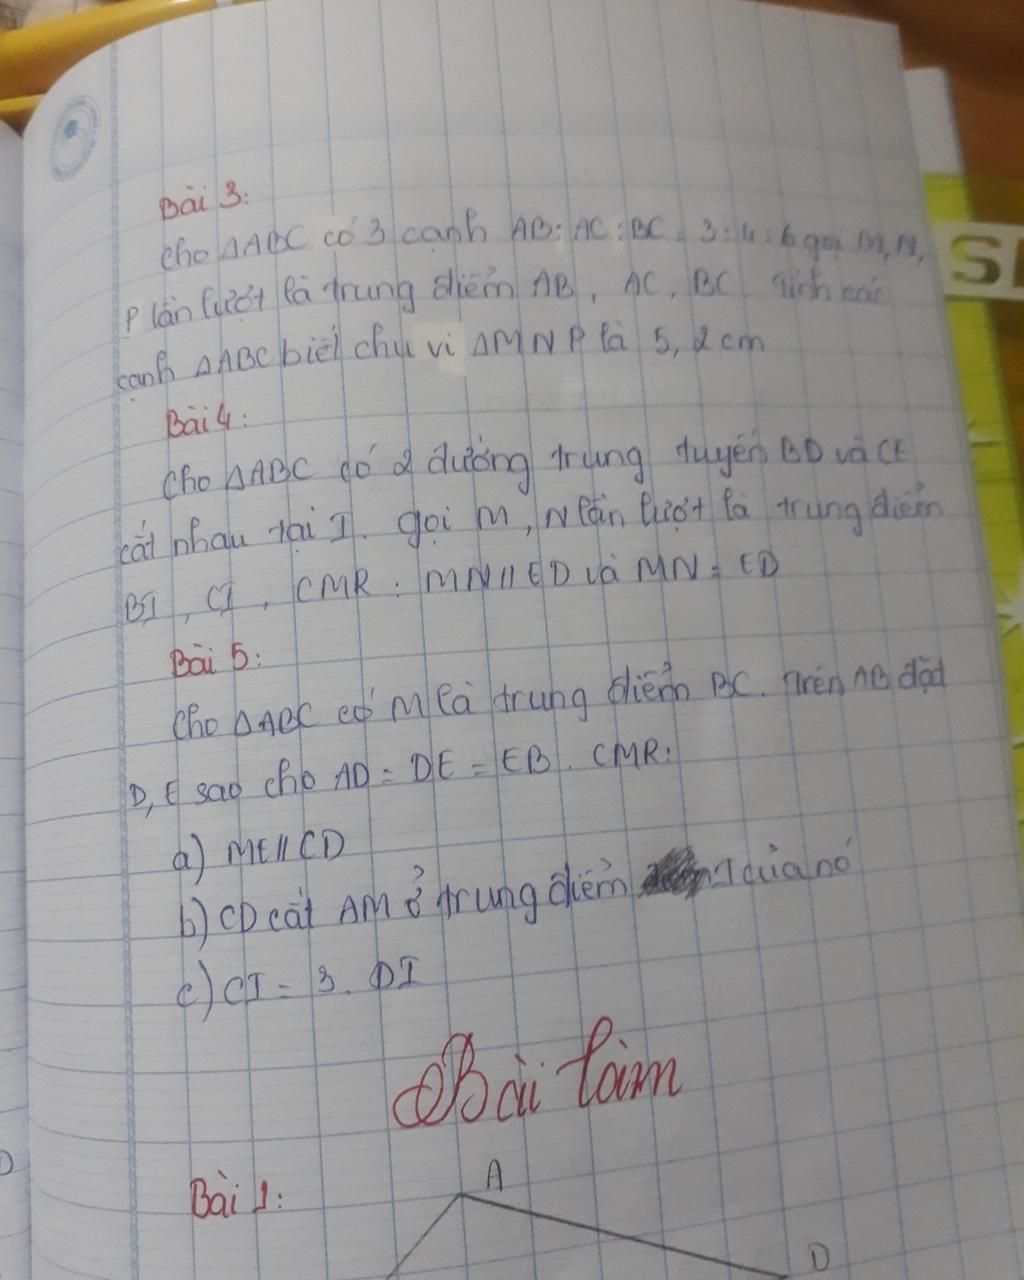 Bài 3:
Cho ΔABC có 3 cạnh AB: AC: BC = 3:4:6 gọi M, N,
P lần lượt là trung điểm AB, AC, BC. Tính các
cạnh ΔABC biết chu vi ΔMNP là 5,2cm
Bài 4:
Cho ΔABC có 2 đường trung tuyến BD và CE
cắt nhau tại I. gọi M, N lần lượt là trung điểm
BI, CI, CMR: MN // ED và MN = ED
Bài 5:
Cho ΔABC có M là trung điểm BC. Trên AB đặt
D, E sao cho AD = DE = EB. CMR:
a) ME // CD
b) CD cắt AM ở trung điểm I của nó
c) CI = 3. DI
Bài làm
Bài 1:
A
D
SI